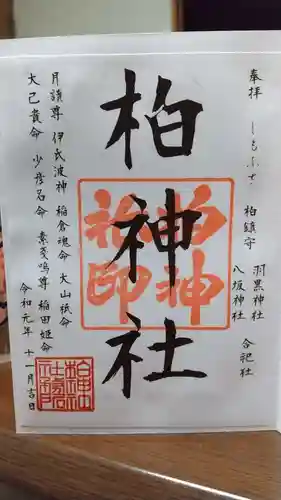 奉拝 しもふさ 柏鎮守
羽黒神社
八坂神社
合祀社
柏神社
柏神社印
月讀尊 伊氐波神 稲倉魂命 大山祇命
大己貴命 少彦名命 素戔嗚尊 稲田姫命
令和元年 十一月吉日